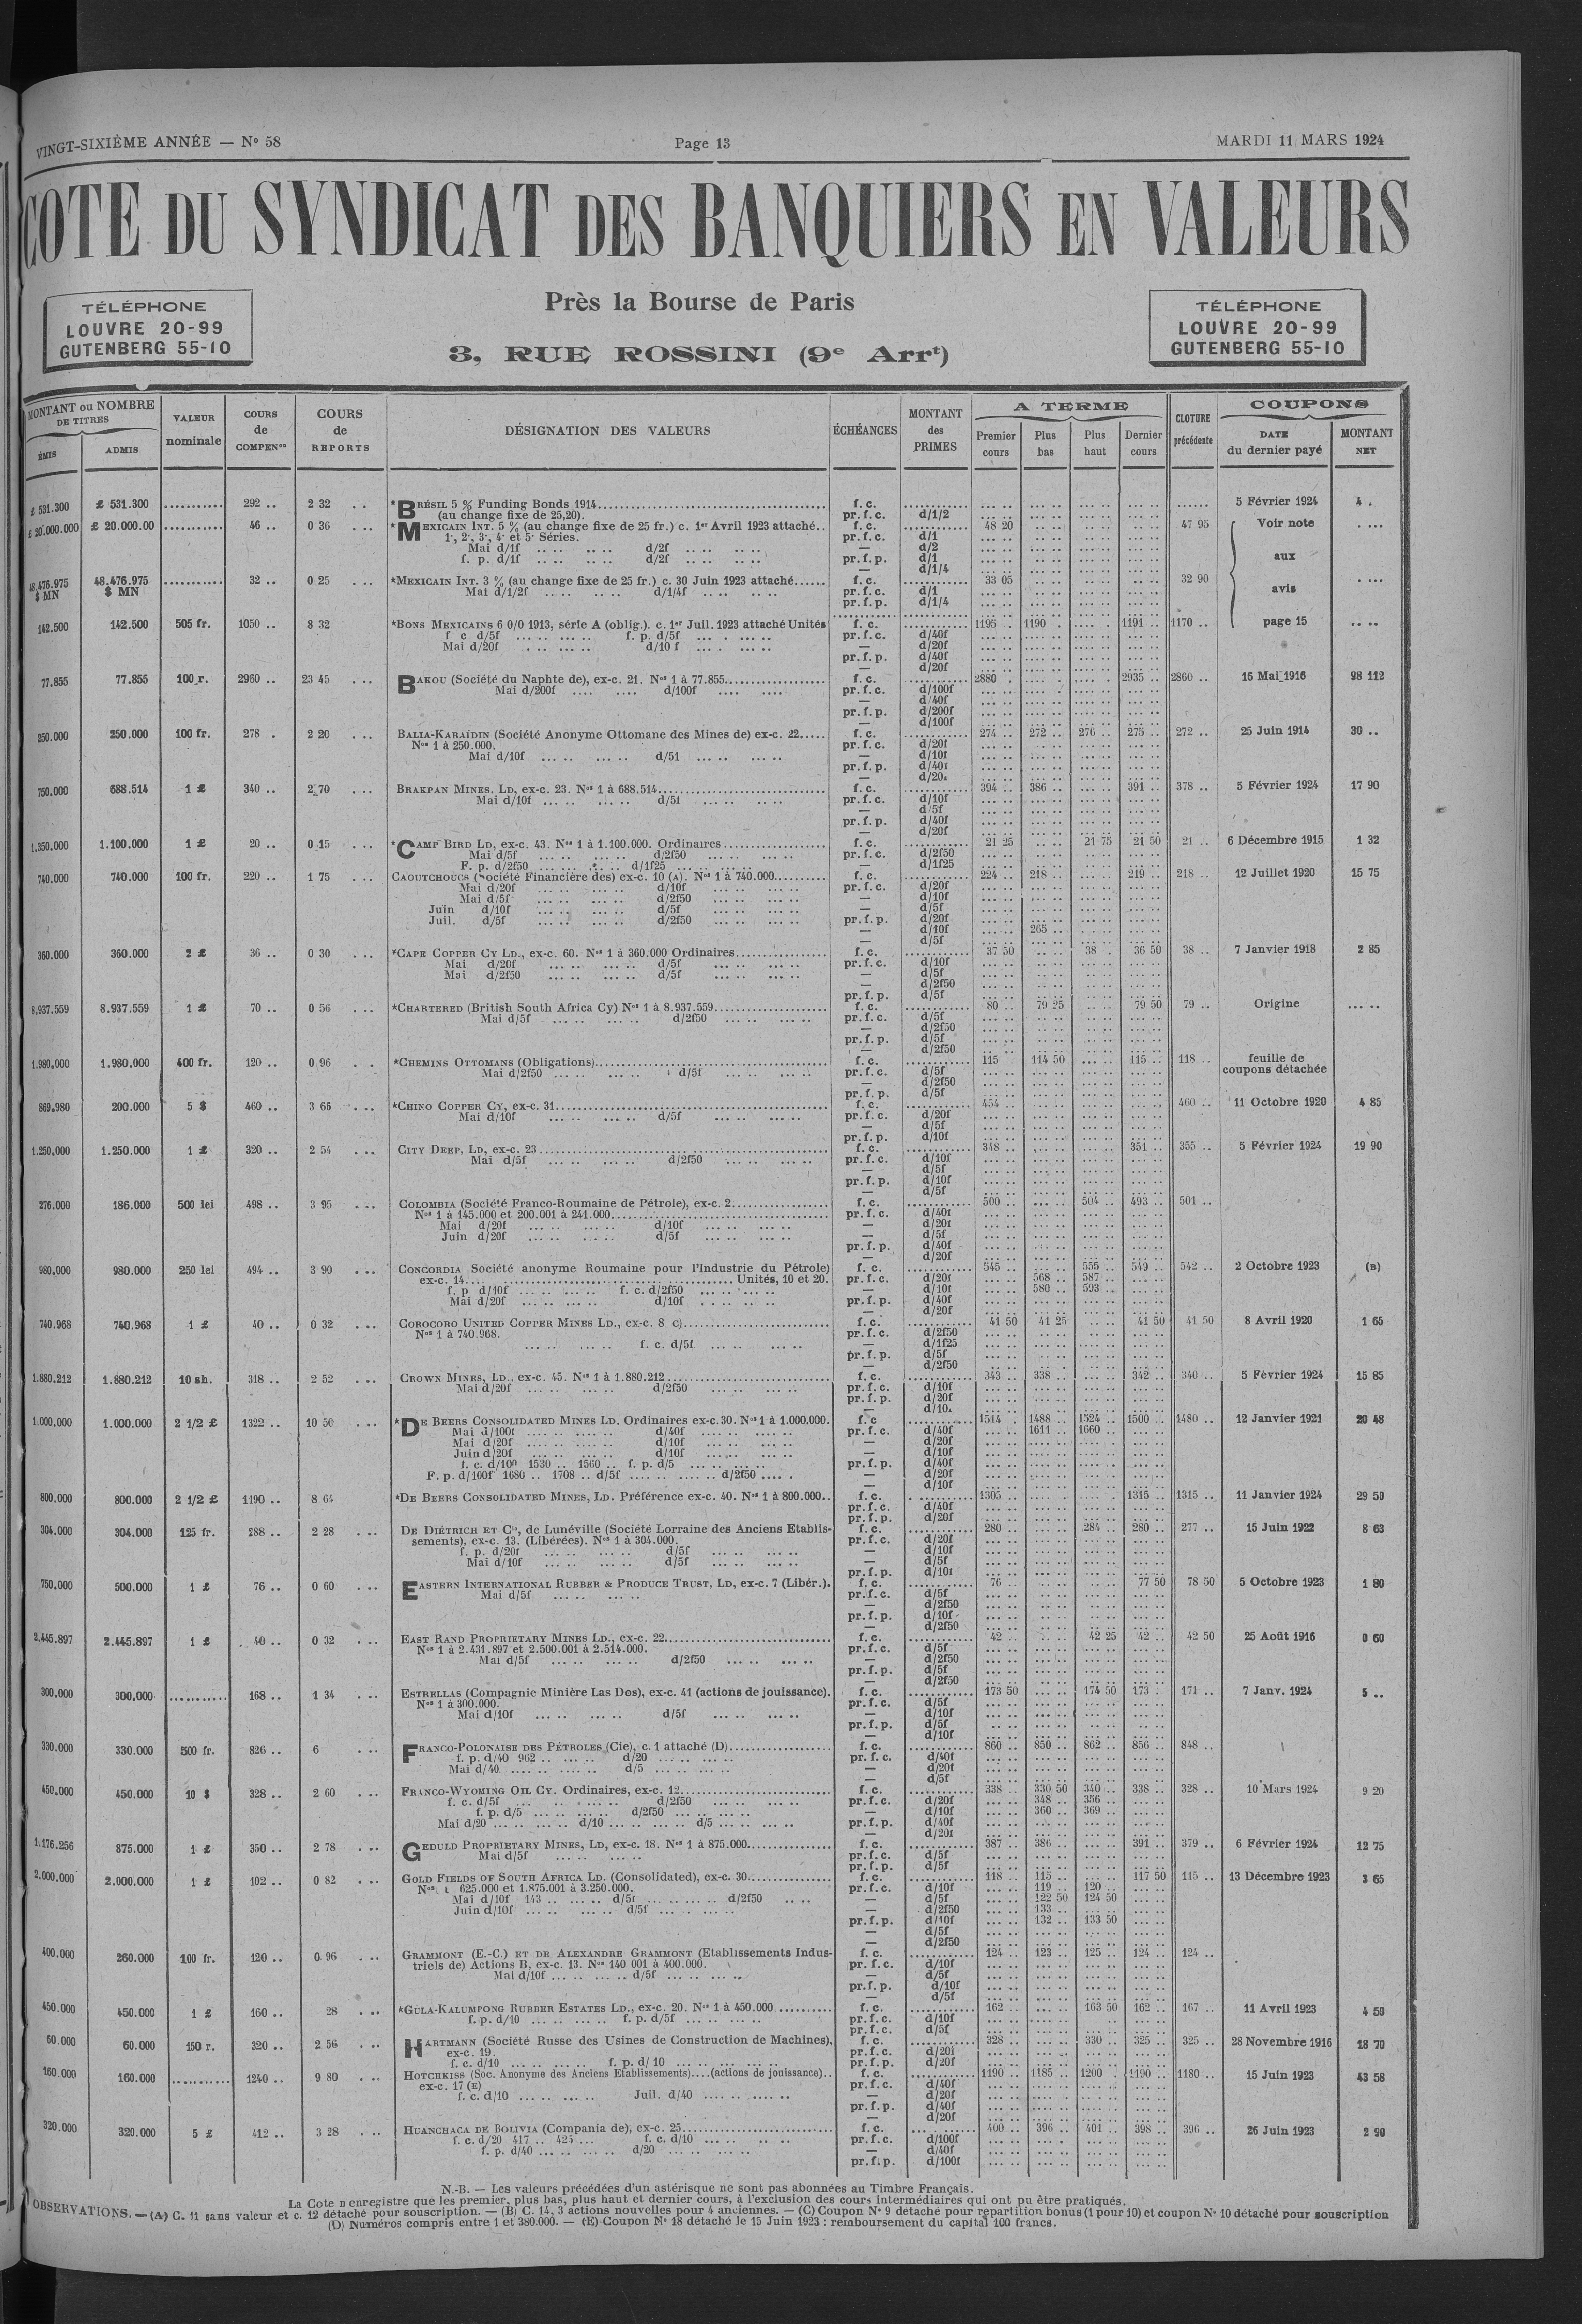 VINGT-SIXIÈME ANNÉE — N° 58 Page 13 MARDI 11 MARS 1924
COTE DU SYNDICAT DES BANQUIERS EN VALEURS
TÉLÉPHONE
LOUVRE 20-99
GUTENBERG 55-10
Près la Bourse de Paris
3, RUE ROSSINI (9e Arrt)
TÉLÉPHONE
LOUVRE 20-99
GUTENBERG 55-10
MONTANT ou NOMBRE DE TITRES
ÉMIS ADMIS
VALEUR nominale
COURS de COMPENon
COURS de REPORTS
DÉSIGNATION DES VALEURS
ÉCHÉANCES
MONTANT des PRIMES
A TERME
Premier cours Plus bas Plus haut Dernier cours
CLOTURE précédente
COUPONS
DATE du dernier payé MONTANT NET
£ 531.300 £ 531.300 ........... 292 .. 2 32 .. *BRÉSIL 5 % Funding Bonds 1914 f. c. 5 Février 1924 4 .
(au change fixe de 25,20). pr. f. c. d/1/2
£ 20.000.000 £ 20.000.00 ........... 46 .. 0 36 ... *MEXICAIN INT. 5 % (au change fixe de 25 fr.) c. 1er Avril 1923 attaché.. f. c. 48 20 47 95 Voir note
1e, 2e, 3e, 4e et 5e Séries. pr. f. c. d/1
Mai d/1f .. .. .. .. d/2f .. .. .. .. — d/2
f. p. d/1f .. .. .. .. d/2f .. .. .. .. pr. f. p. d/1 aux
— d/1/4
48.476.975 $ MN 48.476.975 $ MN ........... 32 .. 0 25 ... *MEXICAIN INT. 3 % (au change fixe de 25 fr.) c. 30 Juin 1923 attaché f. c. 33 05 32 90
Mai d/1/2f .. .. .. .. d/1/4f .. .. .. .. pr. f. c. d/1 avis
pr. f. p. d/1/4
142.500 142.500 505 fr. 1050 .. 8 32 *BONS MEXICAINS 6 0/0 1913, série A (oblig.). c. 1er Juil. 1923 attaché Unités f. c. 1195 . 1190 . 1191 .. 1170 .. page 15
f c d/5f f. p. d/5f pr. f. c. d/40f
Mai d/20f d/10 f — d/20f
pr. f. p. d/40f
— d/20f
77.855 77.855 100 r. 2960 .. 23 45 ... BAKOU (Société du Naphte de), ex-c. 21. Nos 1 à 77.855 f. c. 2880 . 2935 .. 2860 .. 16 Mai 1916 98 112
Mai d/200f d/100f pr. f. c. d/100f
— d/40f
pr. f. p. d/200f
— d/100f
250.000 250.000 100 fr. 278 . 2 20 ... BALIA-KARAÏDIN (Société Anonyme Ottomane des Mines de) ex-c. 22 f. c. 274 .. 272 .. 276 .. 275 .. 272 .. 25 Juin 1914 30 ..
Nos 1 à 250.000. pr. f. c. d/20f
Mai d/10f d/5f — d/10f
pr. f. p. d/40f
— d/20f
750.000 688.514 1 £ 340 .. 2 70 ... BRAKPAN MINES. LD, ex-c. 23. Nos 1 à 688.514 f. c. 394 .. 386 .. 391 .. 378 .. 5 Février 1924 17 90
Mai d/10f d/5f pr. f. c. d/10f
— d/5f
pr. f. p. d/40f
— d/20f
1.350.000 1.100.000 1 £ 20 .. 0 15 ... *CAMP BIRD LD, ex-c. 43. Nos 1 à 1.100.000. Ordinaires f. c. 21 25 21 75 21 50 21 .. 6 Décembre 1915 1 32
Mai d/5f d/2f50 pr. f. c. d/2f50
F. p. d/2f50 d/1f25 — d/1f25
740.000 740.000 100 fr. 220 .. 1 75 ... CAOUTCHOUCS (Société Financière des) ex-c. 10 (A). Nos 1 à 740.000 f. c. 224 .. 218 .. 219 .. 218 .. 12 Juillet 1920 15 75
Mai d/20f d/10f pr. f. c. d/20f
Mai d/5f d/2f50 — d/10f
Juin d/10f d/5f — d/5f
Juil. d/5f d/2f50 pr. f. p. d/20f
— d/10f 265 ..
— d/5f
360.000 360.000 2 £ 36 .. 0 30 ... *CAPE COPPER CY LD., ex-c. 60. Nos 1 à 360.000 Ordinaires f. c. 37 50 38 . 36 50 38 .. 7 Janvier 1918 2 85
Mai d/20f d/5f pr. f. c. d/10f
Mai d/2f50 d/5f — d/5f
— d/2f50
pr. f. p. d/5f
8.937.559 8.937.559 1 £ 70 .. 0 56 ... *CHARTERED (British South Africa Cy) Nos 1 à 8.937.559 f. c. 80 .. 79 25 79 50 79 .. Origine
Mai d/5f d/2f50 pr. f. c. d/5f
— d/2f50
pr. f. p. d/5f
— d/2f50
1.980.000 1.980.000 400 fr. 120 .. 0 96 .. *CHEMINS OTTOMANS (Obligations) f. c. 115 114 50 115 .. 118 .. feuille de
Mai d/2f50 d/5f pr. f. c. d/5f coupons détachée
— d/2f50
pr. f. p. d/5f
869.980 200.000 5 $ 460 .. 3 65 ... *CHINO COPPER CY, ex-c. 31 f. c. 454 .. 460 .. 11 Octobre 1920 4 85
Mai d/10f d/5f pr. f. c. d/20f
— d/5f
pr. f. p. d/10f
1.250.000 1.250.000 1 £ 320 .. 2 54 ... CITY DEEP, LD, ex-c. 23 f. c. 348 .. 351 .. 355 .. 5 Février 1924 19 90
Mai d/5f d/2f50 pr. f. c. d/10f
— d/5f
pr. f. p. d/10f
— d/5f
276.000 186.000 500 lei 498 .. 3 95 ... COLOMBIA (Société Franco-Roumaine de Pétrole), ex-c. 2 f. c. 500 .. 504 .. 493 .. 501 ..
Nos 1 à 145.000 et 200.001 à 241.000 pr. f. c. d/40f
Mai d/20f d/10f — d/20f
Juin d/20f d/5f — d/5f
pr. f. p. d/40f
— d/20f
980.000 980.000 250 lei 494 .. 3 90 ... CONCORDIA Société anonyme Roumaine pour l'Industrie du Pétrole) f. c. 545 .. 555 .. 549 .. 542 .. 2 Octobre 1923 (B)
ex-c. 14 Unités, 10 et 20. pr. f. c. d/20f 568 .. 587 ..
f. p d/10f f. c. d/2f50 — d/10f 580 .. 593 ..
Mai d/20f d/10f pr. f. p. d/40f
— d/20f
740.968 740.968 1 £ 40 .. 0 32 ... COROCORO UNITED COPPER MINES LD., ex-c. 8 c) f. c. 41 50 41 25 41 50 41 50 8 Avril 1920 1 65
Nos 1 à 740.968. pr. f. c. d/2f50
f. c. d/5f — d/1f25
pr. f. p. d/5f
— d/2f50
1.880.212 1.880.212 10 sh. 318 .. 2 52 ... CROWN MINES, LD., ex-c. 45. Nos 1 à 1.880.212 f. c. 343 .. 338 .. 342 .. 340 .. 5 Février 1924 15 85
Mai d/20f d/2f50 pr. f. c. d/10f
pr. f. p. d/20f
— d/10f
1.000.000 1.000.000 2 1/2 £ 1322 .. 10 50 ... *DE BEERS CONSOLIDATED MINES LD. Ordinaires ex-c. 30. Nos 1 à 1.000.000. f. c 1514 . 1488 .. 1524 1500 .. 1480 .. 12 Janvier 1921 20 48
Mai d/100f d/40f pr. f. c. d/40f 1611 .. 1660 ..
Mai d/20f d/10f — d/20f
Juin d/20f d/10f — d/10f
f. c. d/100 1530 .. 1560 .. f. p. d/5 pr. f. p. d/40f
F. p. d/100f 1680 .. 1708 .. d/5f d/2f50 — d/20f
— d/10f
800.000 800.000 2 1/2 £ 1190 .. 8 64 *DE BEERS CONSOLIDATED MINES, LD. Préférence ex-c. 40. Nos 1 à 800.000.. f. c. 1305 .. 1315 .. 1315 .. 11 Janvier 1924 29 50
pr. f. c. d/40f
pr. f. p. d/20f
304.000 304.000 125 fr. 288 .. 2 28 ... DE DIÉTRICH ET Cie, de Lunéville (Société Lorraine des Anciens Etablis- f. c. 280 .. 284 .. 280 .. 277 .. 15 Juin 1922 8 63
sements), ex-c. 13. (Libérées). Nos 1 à 304.000. pr. f. c. d/20f
f. p. d/20f d/5f — d/10f
Mai d/10f d/5f — d/5f
pr. f. p. d/10f
750.000 500.000 1 £ 76 .. 0 60 ... EASTERN INTERNATIONAL RUBBER & PRODUCE TRUST, LD, ex-c. 7 (Libér.). f. c. 76 .. 77 50 78 50 5 Octobre 1923 1 80
Mai d/5f pr. f. c. d/5f
— d/2f50
pr. f. p. d/10f
— d/2f50
2.445.897 2.445.897 1 £ 40 .. 0 32 ... EAST RAND PROPRIETARY MINES LD., ex-c. 22 f. c. 42 .. 42 25 42 .. 42 50 25 Août 1916 0 60
Nos 1 à 2.431.897 et 2.500.001 à 2.514.000. pr. f. c. d/5f
Mai d/5f d/2f50 — d/2f50
pr. f. p. d/5f
— d/2f50
300.000 300.000 ........... 168 .. 1 34 ... ESTRELLAS (Compagnie Minière Las Dos), ex-c. 41 (actions de jouissance). f. c. 173 50 174 50 173 . 171 .. 7 Janv. 1924 5 ..
Nos 1 à 300.000. pr. f. c. d/5f
Mai d/10f d/5f — d/10f
pr. f. p. d/5f
— d/10f
330.000 330.000 500 fr. 826 .. 6 ... FRANCO-POLONAISE DES PÉTROLES (Cie), c. 1 attaché (D) f. c. 860 .. 850 .. 862 .. 856 .. 848 ..
f. p. d/40 962 .. d/20 pr. f. c. d/40f
Mai d/40 d/5 — d/20f
— d/5f
450.000 450.000 10 $ 328 .. 2 60 ... FRANCO-WYOMING OIL CY. Ordinaires, ex-c. 12 f. c. 338 .. 330 50 340 .. 338 .. 328 .. 10 Mars 1924 9 20
f. c. d/5f d/2f50 pr. f. c. d/20f 348 .. 356 ..
f. p. d/5 d/2f50 — d/10f 360 .. 369 ..
Mai d/20 d/10 d/5 pr. f. p. d/40f
— d/20f
1.176.256 875.000 1 £ 350 .. 2 78 ... GEDULD PROPRIETARY MINES, LD, ex-c. 18. Nos 1 à 875.000 f. c. 387 .. 386 .. 391 .. 379 .. 6 Février 1924 12 75
Mai d/5f pr. f. c. d/5f
pr. f. p. d/5f
2.000.000 2.000.000 1 £ 102 .. 0 82 ... GOLD FIELDS OF SOUTH AFRICA LD. (Consolidated), ex-c. 30 f. c. 118 .. 115 .. 117 50 115 .. 13 Décembre 1923 3 65
Nos 1 625.000 et 1.875.001 à 3.250.000. pr. f. c. d/10f 119 .. 120 ..
Mai d/10f 143 .. d/5f d/2f50 — d/5f 122 50 124 50
Juin d/10f d/5f — d/2f50 133 ..
pr. f. p. d/10f 132 .. 133 50
— d/5f
— d/2f50
400.000 260.000 100 fr. 120 .. 0. 96 ... GRAMMONT (E.-C.) ET DE ALEXANDRE GRAMMONT (Etablissements Indus- f. c. 124 .. 123 .. 125 .. 124 .. 124 ..
triels de) Actions B, ex-c. 13. Nos 140 001 à 400.000. pr. f. c. d/10f
Mai d/10f d/5f — d/5f
pr. f. p. d/10f
— d/5f
450.000 450.000 1 £ 160 .. 28 ... *GULA-KALUMPONG RUBBER ESTATES LD., ex-c. 20. Nos 1 à 450.000 f. c. 162 .. 163 50 162 .. 167 .. 11 Avril 1923 4 50
f. p. d/10 f. p. d/5f pr. f. c. d/10f
pr. f. c. d/5f
60.000 60.000 150 r. 320 .. 2 56 ... HARTMANN (Société Russe des Usines de Construction de Machines), f. c. 328 .. 330 .. 325 .. 325 .. 28 Novembre 1916 18 70
ex-c. 19. pr. f. c. d/20f
f. c. d/10 f. p. d/ 10 pr. f. p. d/20f
160.000 160.000 ........... 1240 .. 9 80 ... HOTCHKISS (Soc. Anonyme des Anciens Etablissements)....(actions de jouissance).. f. c. 1190 .. 1185 .. 1200 . 1190 .. 1180 .. 15 Juin 1923 43 58
ex-c. 17 (E) pr. f. c. d/40f
f. c. d/10 Juil. d/40 — d/20f
pr. f. p. d/40f
— d/20f
320.000 320.000 5 £ 412 .. 3 28 ... HUANCHACA DE BOLIVIA (Compania de), ex-c. 25 f. c. 400 .. 396 .. 401 .. 398 .. 396 .. 26 Juin 1923 2 90
f. c. d/20 417 .. 425 ... f. c. d/10 pr. f. c. d/100f
f. p. d/40 d/20 — d/40f
pr. f. p. d/100f
N.-B. — Les valeurs précédées d'un astérisque ne sont pas abonnées au Timbre Français.
La Cote n enregistre que les premier, plus bas, plus haut et dernier cours, à l'exclusion des cours intermédiaires qui ont pu être pratiqués.
OBSERVATIONS. — (A) C. 11 sans valeur et c. 12 détaché pour souscription. — (B) C. 14, 3 actions nouvelles pour 4 anciennes. — (C) Coupon N° 9 détaché pour répartition bonus (1 pour 10) et coupon N° 10 détaché pour souscription
(D) Numéros compris entre 1 et 380.000. — (E) Coupon N° 18 détaché le 15 Juin 1923 : remboursement du capital 100 francs.